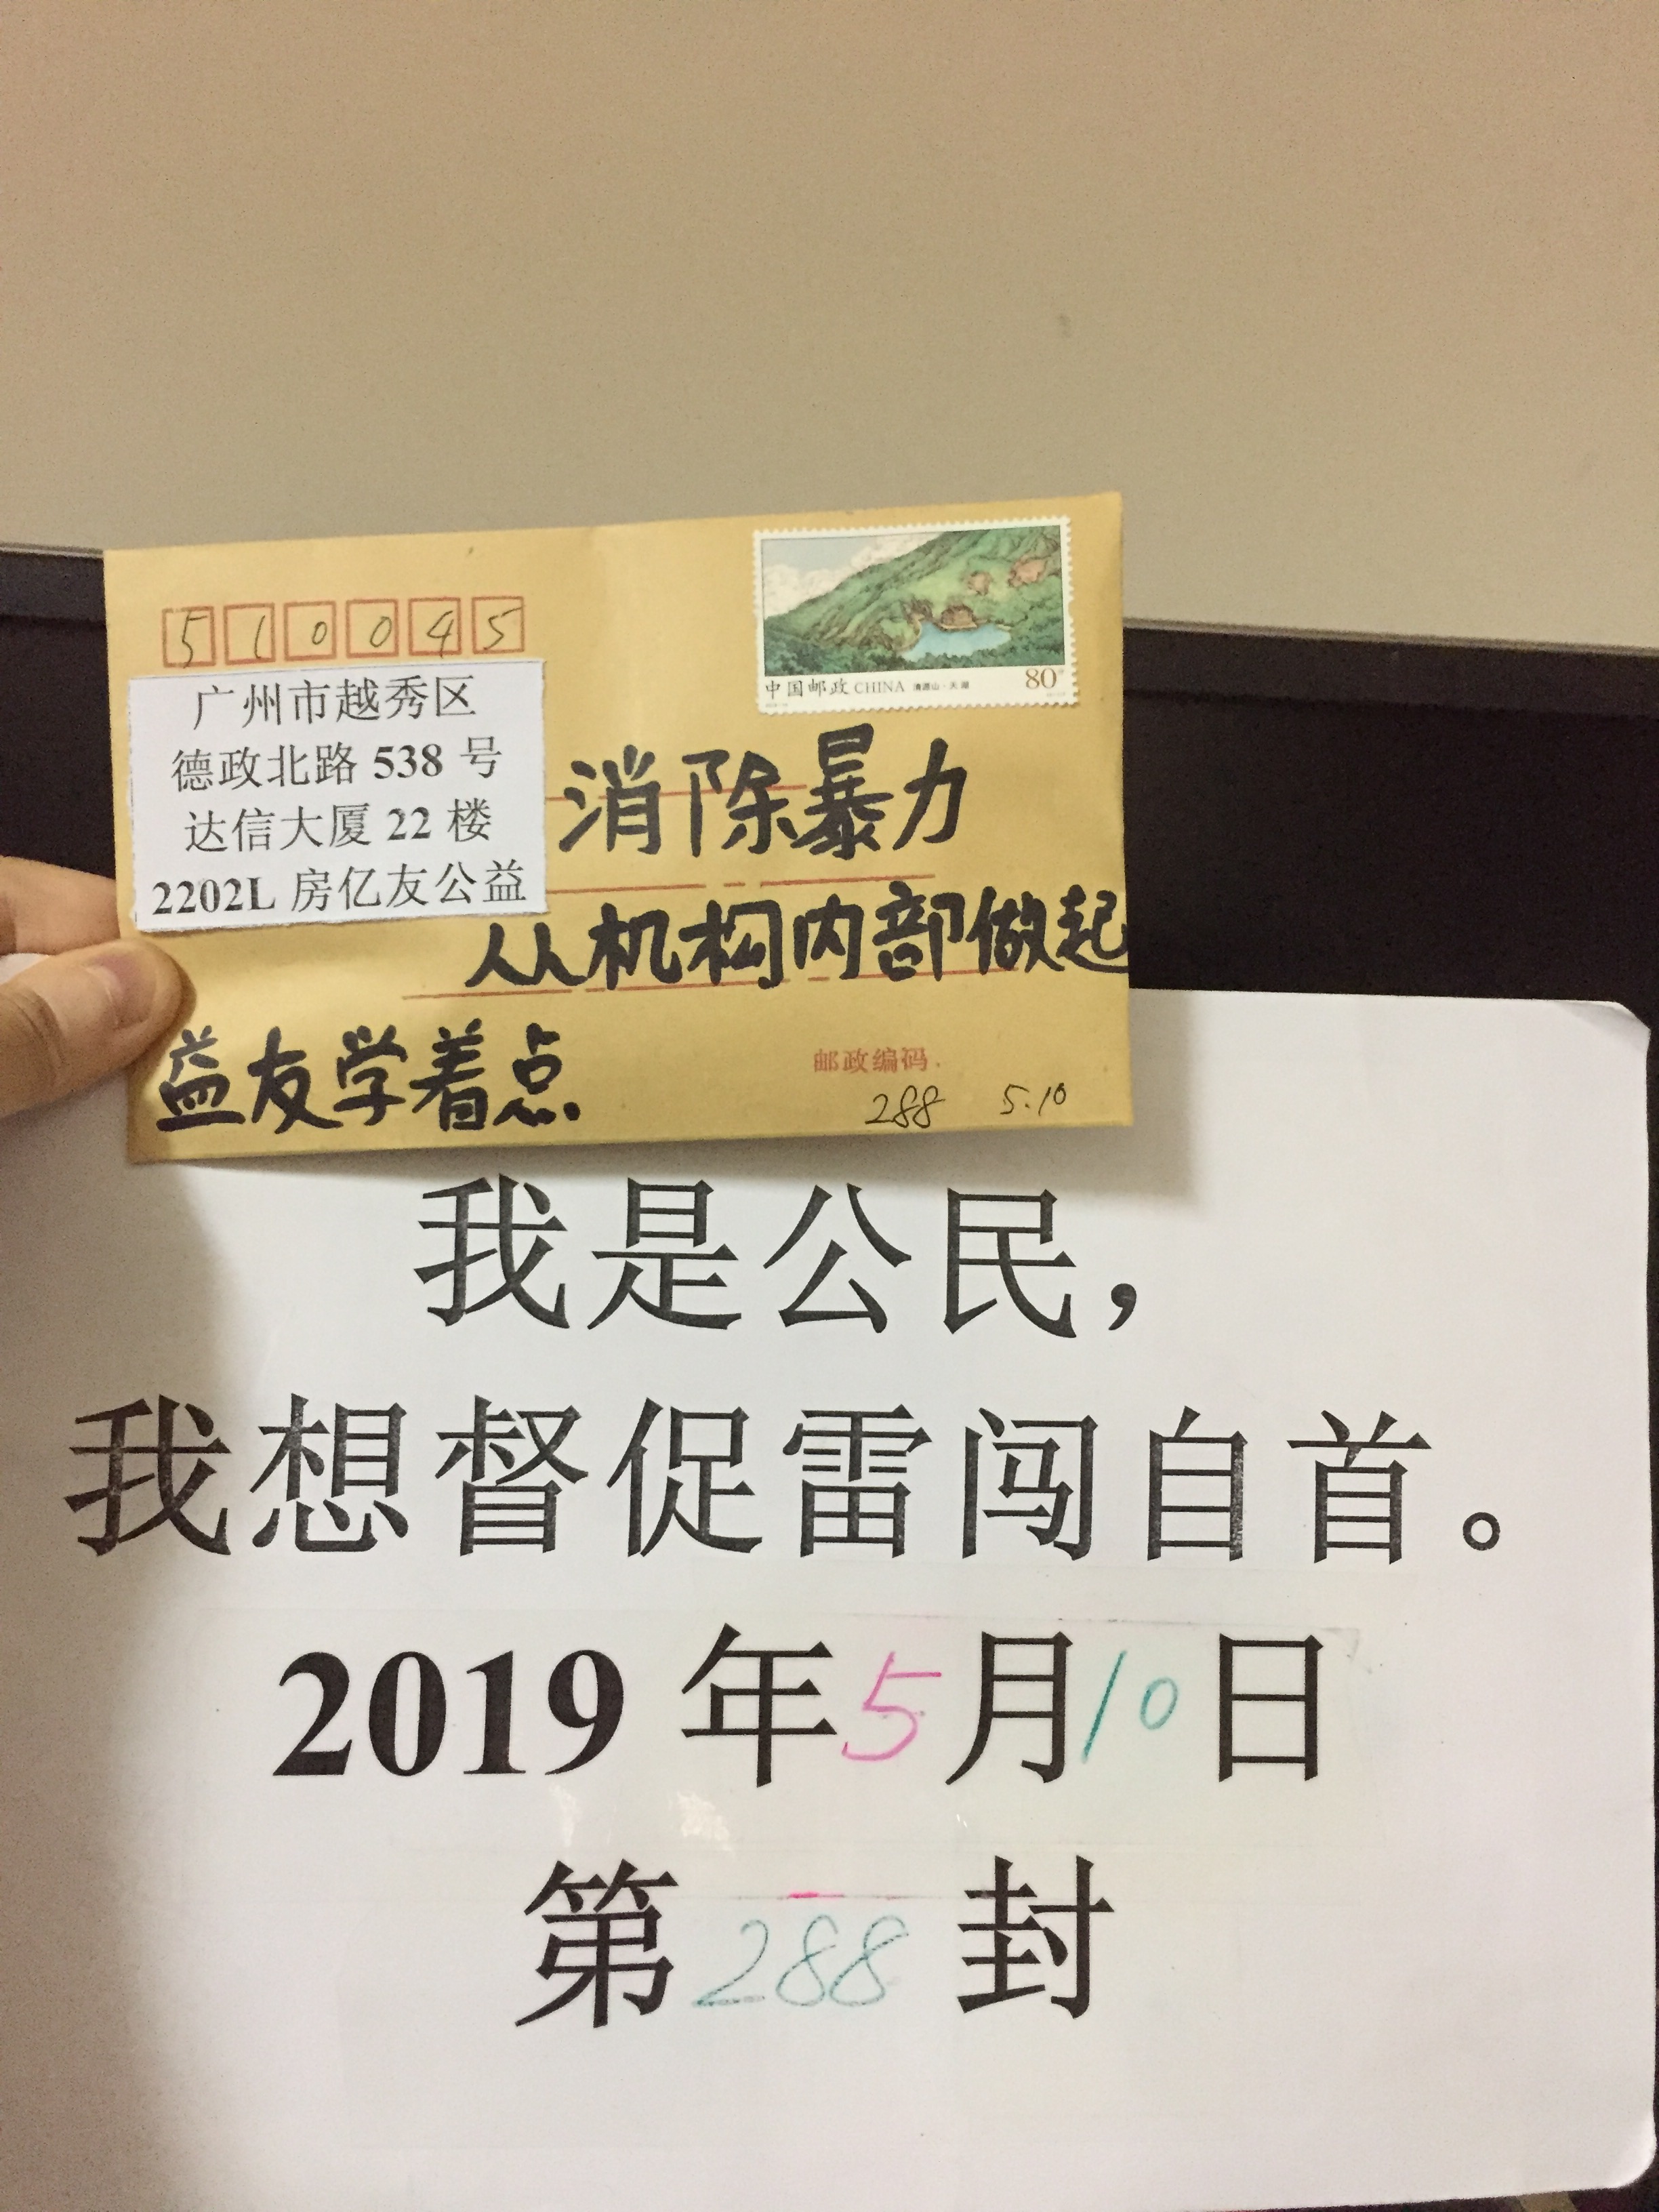 510045
中国邮政 CHINA 清源山·天湖 80分
广州市越秀区
德政北路 538 号
达信大厦 22 楼
2202L 房亿友公益
消除暴力
从机构内部做起
益友学着点
邮政编码
288 5.10
我是公民，
我想督促雷闯自首。
2019 年 5 月 10 日
第 288 封